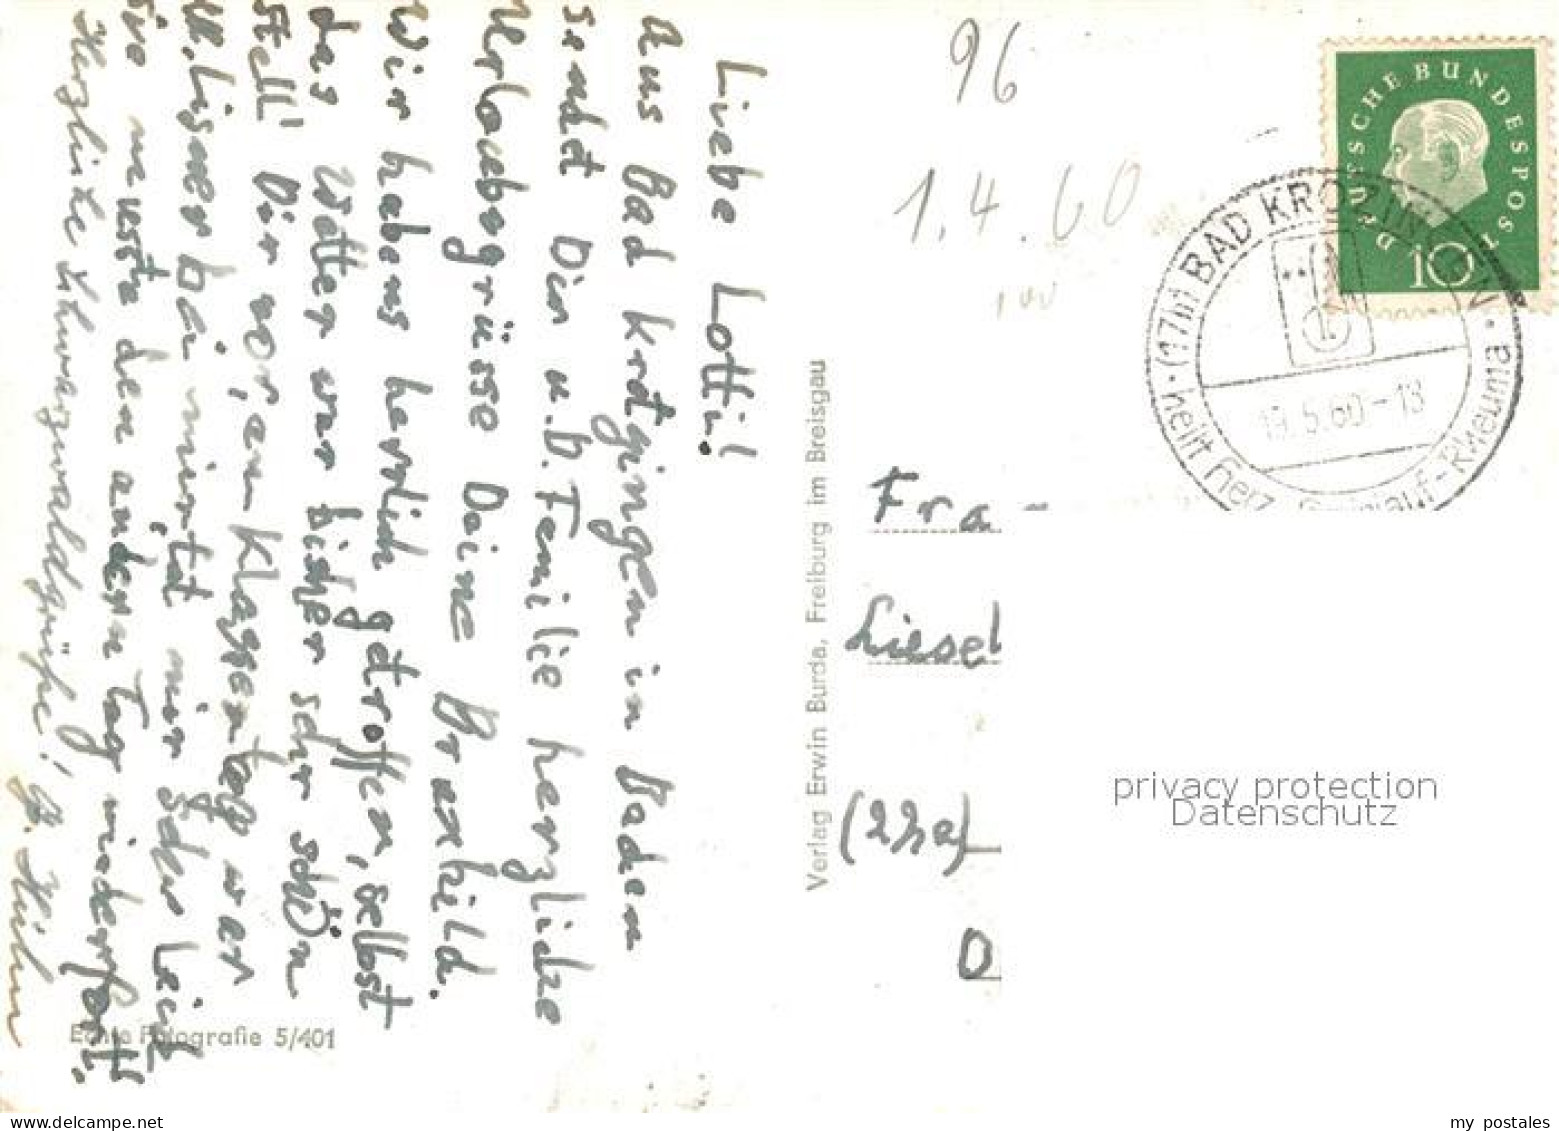 Liebe Lotti!
Aus Bad Krotzingen in Baden
sendet Dir u. d. Familie herzliche
Urlaubsgrüsse Deine Braxhild.
Wir habens herrlich getroffen, selbst
das Wetter war bisher sehr schön
stell' Dir vor, am Klassentag war
bei mir tat mir sehr leid
Sie musste den andern Tag wieder fort.
Herzliche Schwarzwaldgrüße!
Echte Fotografie 5/401
Verlag Erwin Burda, Freiburg im Breisgau
96
1.4.60
100
DEUTSCHE BUNDESPOST
10
(17b) BAD KROZINGEN
19.5.60-18
heilt Herz Kreislauf-Rheuma
Fra
Liesel
(22a)
D
privacy protection
Datenschutz
my postales